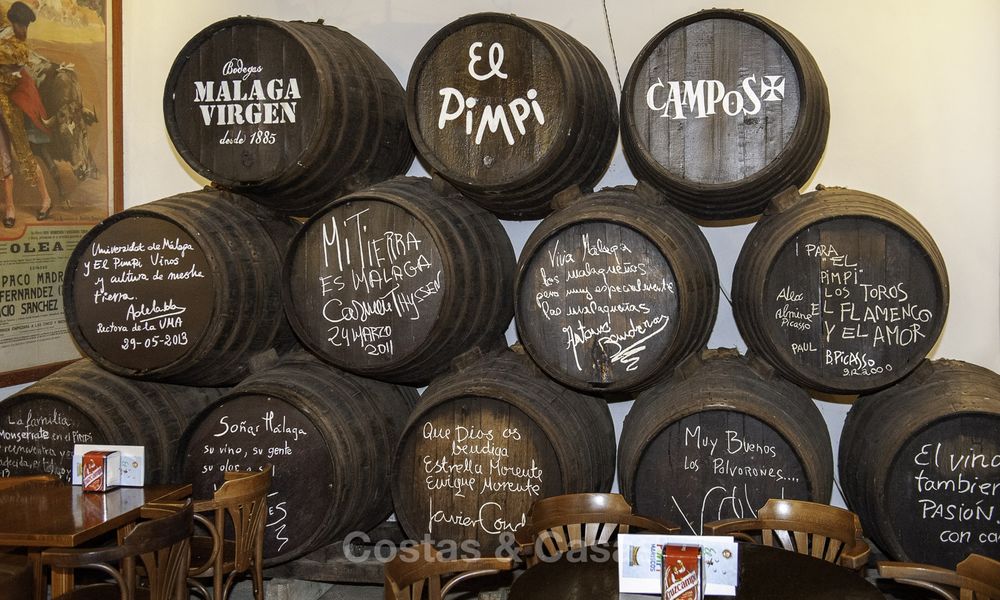 Bodegas
MÁLAGA
VIRGEN
desde 1885
El
PiMPi
CAMPOS
OLEA
PACO MADR
FERNÁNDEZ
CIO SANCHEZ
Universidad de Málaga
y El Pimpi, Vinos
y cultura de nuestra
tierra.
Adelaida
Rectora de la UMA
29-05-2013
Mi TiERRA
ES MALAGA
Carmen Thyssen
24 MARZO
2011
Viva Malaga
los malagueños
pero muy especialmente
las malagueñas
Antonio Banderas
PARA "EL
PIMPI"
LOS TOROS
EL FLAMENCO
Y EL AMOR
Alex
Almine
Picasso
PAUL
B. PICASSO
9.12.2000
La familia
Monserrate en el Pimpi
Soñar Málaga
su vino, su gente
su olor a
Que Dios os
bendiga
Estrella Morente
Enrique Morente
Javier Cond
Muy Buenos
Los Polvorones....
El vino
tambien
PASIÓN
con ca
Costas & Casa
uzcamp